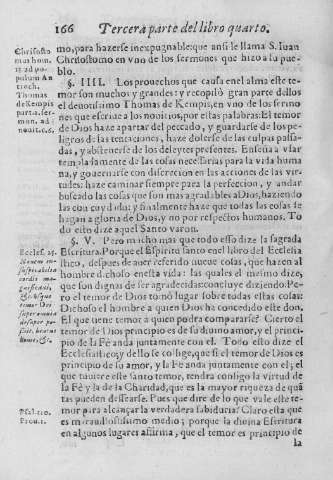 166 Tercera parte del libro quarto.
Chrisosto
mus hom.
12. ad po
pulum An
tioch.
Thomas
de Kempis
part. 2. ser-
mon. ad
nouit. c. 6.
mo, para hazerse inexpugnable: que ansi le llama S. Iuan
Chrisostomo en vno de los sermones que hizo a su pue-
blo.
§. IIII. Los prouechos que causa en el alma este te-
mor son muchos y grandes: y recopiló gran parte dellos
el deuotissimo Thomas de Kempis, en vno de los sermo
nes que escriue a los nouicios, por estas palabras. El temor
de Dios haze apartar del peccado, y guardarse de los pe-
ligros de las tentaciones, haze dolerse de las culpas passa-
das, y abstenerse de los deleytes presentes. Enseña a viar
templadamente de las cosas necessarias para la vida huma
na, y gouernarse con discrecion en las acciones de las vir-
tudes: haze caminar siempre para la perfeccion, y andar
buscado las cosas que son mas agradables a Dios, haziendo
las con cuydado: y finalmente haze que todas las cosas se
hagan a gloria de Dios, y no por respectos humanos. To
do esto dize aquel Santo varon.
§. V. Pero mucho mas que todo esso dize la sagrada
Escritura. Porque el Espiritu santo en el libro del Ecclesia
stico, despues de auer referido nueue cosas, que hazen al
hombre dichoso en esta vida: las quales el mesmo dize,
que son dignas de ser agradecidas: concluye diziendo. Pe-
ro el temor de Dios tomò lugar sobre todas estas cosas:
Dichoso el hombre a quien Dios ha concedido este don,
El que tiene temor a quien podra compararse? Cierto el
temor de Dios principio es de su diuino amor, y el princi-
pio de la Fè anda juntamente con el. Todo esto dize el
Ecclesiastico; y dello se colige, que si el temor de Dios es
principio de su amor, y la Fè anda juntamente con el; el
que tuuiere este santo temor, tendra consigo la virtud de
la Fè y la de la Charidad, que es la mayor riqueza de quã
tas pueden dessearse. Pues que dire de lo que vale este te-
mor para alcançar la verdadera sabiduria? Claro esta que
es marauillosissimo medio; porque la diuina Escritura
en algunos lugares affirma, que el temor es principio de
la
Eccles. 25.
Psal. 110.
Prou. 1.